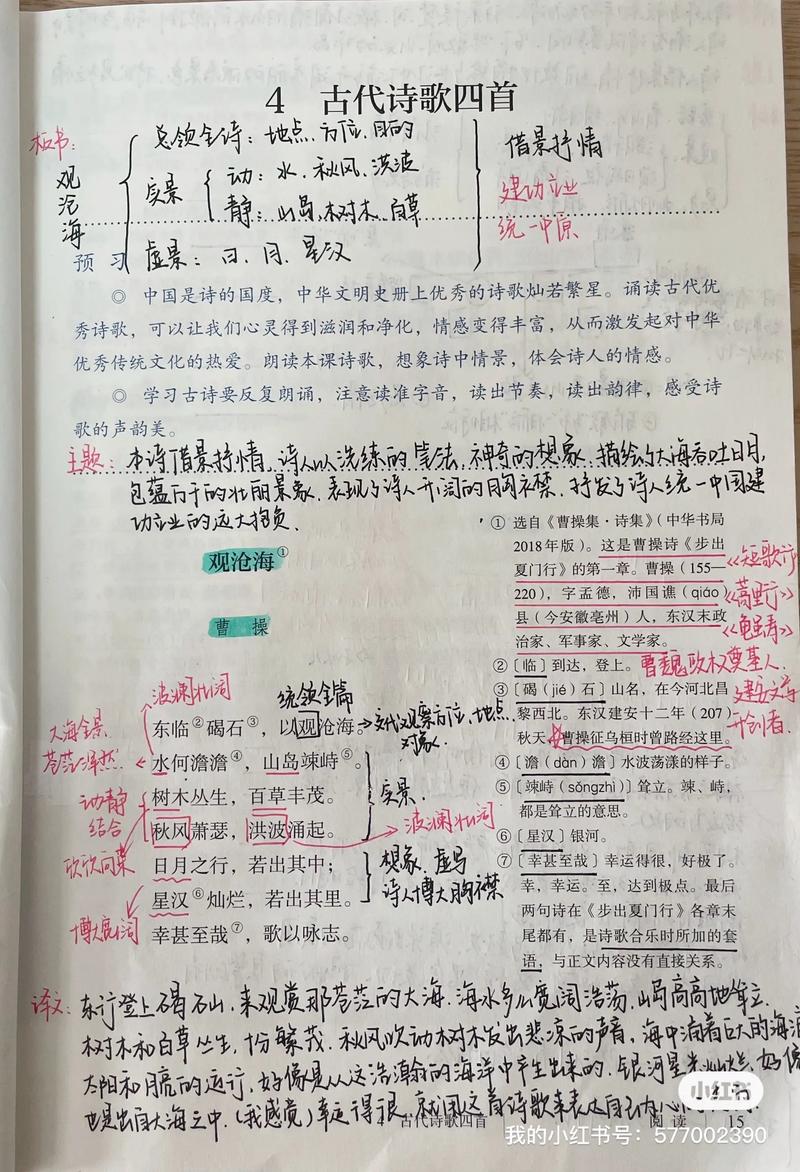 4 古代诗歌四首
板书:
观沧海
总领全诗:地点、方位、目的
实景
动:水、秋风、洪波
静:山岛、树木、百草
虚景:日、月、星汉
借景抒情
建功立业
统一中原
预 习
◎ 中国是诗的国度，中华文明史册上优秀的诗歌灿若繁星。诵读古代优
秀诗歌，可以让我们心灵得到滋润和净化，情感变得丰富，从而激发起对中华
优秀传统文化的热爱。朗读本课诗歌，想象诗中情景，体会诗人的情感。
◎ 学习古诗要反复朗诵，注意读准字音，读出节奏，读出韵律，感受诗
歌的声韵美。
主题:本诗借景抒情,诗人以洗练的笔法,神奇的想象,描绘的大海吞吐日月,
包蕴万千的壮丽景象,表现了诗人开阔的胸襟,抒发了诗人统一中国建
功立业的远大抱负.
观沧海①
曹 操
波澜壮阔
统领全篇
东临②碣石③，以观沧海。
交代观察方位、地点、
对象.
大海全景
苍茫浑然
水何澹澹④，山岛竦峙⑤。
动静
结合
树木丛生，百草丰茂。
秋风萧瑟，洪波涌起。
实景.
波澜壮阔
日月之行，若出其中；
星汉⑥灿烂，若出其里。
想象、虚写
诗人博大胸襟
博大辽阔
幸甚至哉⑦，歌以咏志。
① 选自《曹操集·诗集》（中华书局
2018年版）。这是曹操诗《步出
夏门行》的第一章。曹操（155—
220），字孟德，沛国谯（qiáo）
县（今安徽亳州）人，东汉末政
治家、军事家、文学家。
《短歌行》
《蒿里行》
《龟虽寿》
②〔临〕到达，登上。
曹魏政权奠基人.
③〔碣（jié）石〕山名，在今河北昌
黎西北。东汉建安十二年（207）
秋天，曹操征乌桓时曾路经这里。
建安文学
开创者.
④〔澹（dàn）澹〕水波荡漾的样子。
⑤〔竦峙（sǒngzhì）〕耸立。竦、峙，
都是耸立的意思。
⑥〔星汉〕银河。
⑦〔幸甚至哉〕幸运得很，好极了。
幸，幸运。至，达到极点。最后
两句诗在《步出夏门行》各章末
尾都有，是诗歌合乐时所加的套
语，与正文内容没有直接关系。
译文:东行登上碣石山,来观赏那苍茫的大海,海水多么宽阔浩荡,山岛高高地耸立.
树木和百草丛生,十分繁茂.秋风吹动树木发出悲凉的声音,海中涌着巨大的海浪
太阳和月亮的运行,好像是从这浩瀚的海洋中产生出来的.银河星光灿烂,好像
也是出自大海之中.(我感觉)幸运得很,就用这首诗歌来表达自己内心
古代诗歌四首
阅 读 15
小红书
我的小红书号：577002390